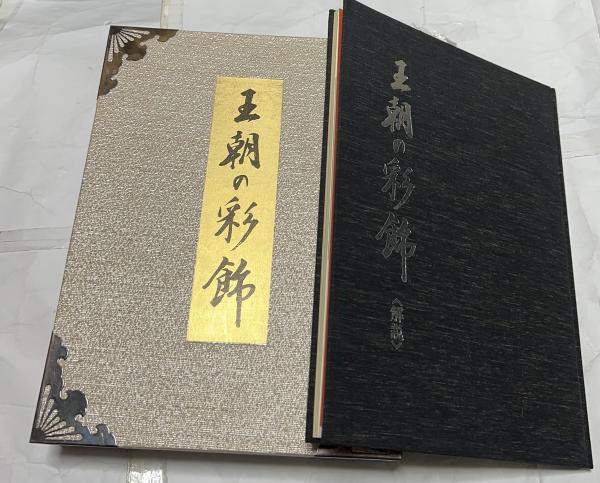 王朝の彩飾
王朝の彩飾
〈解説〉